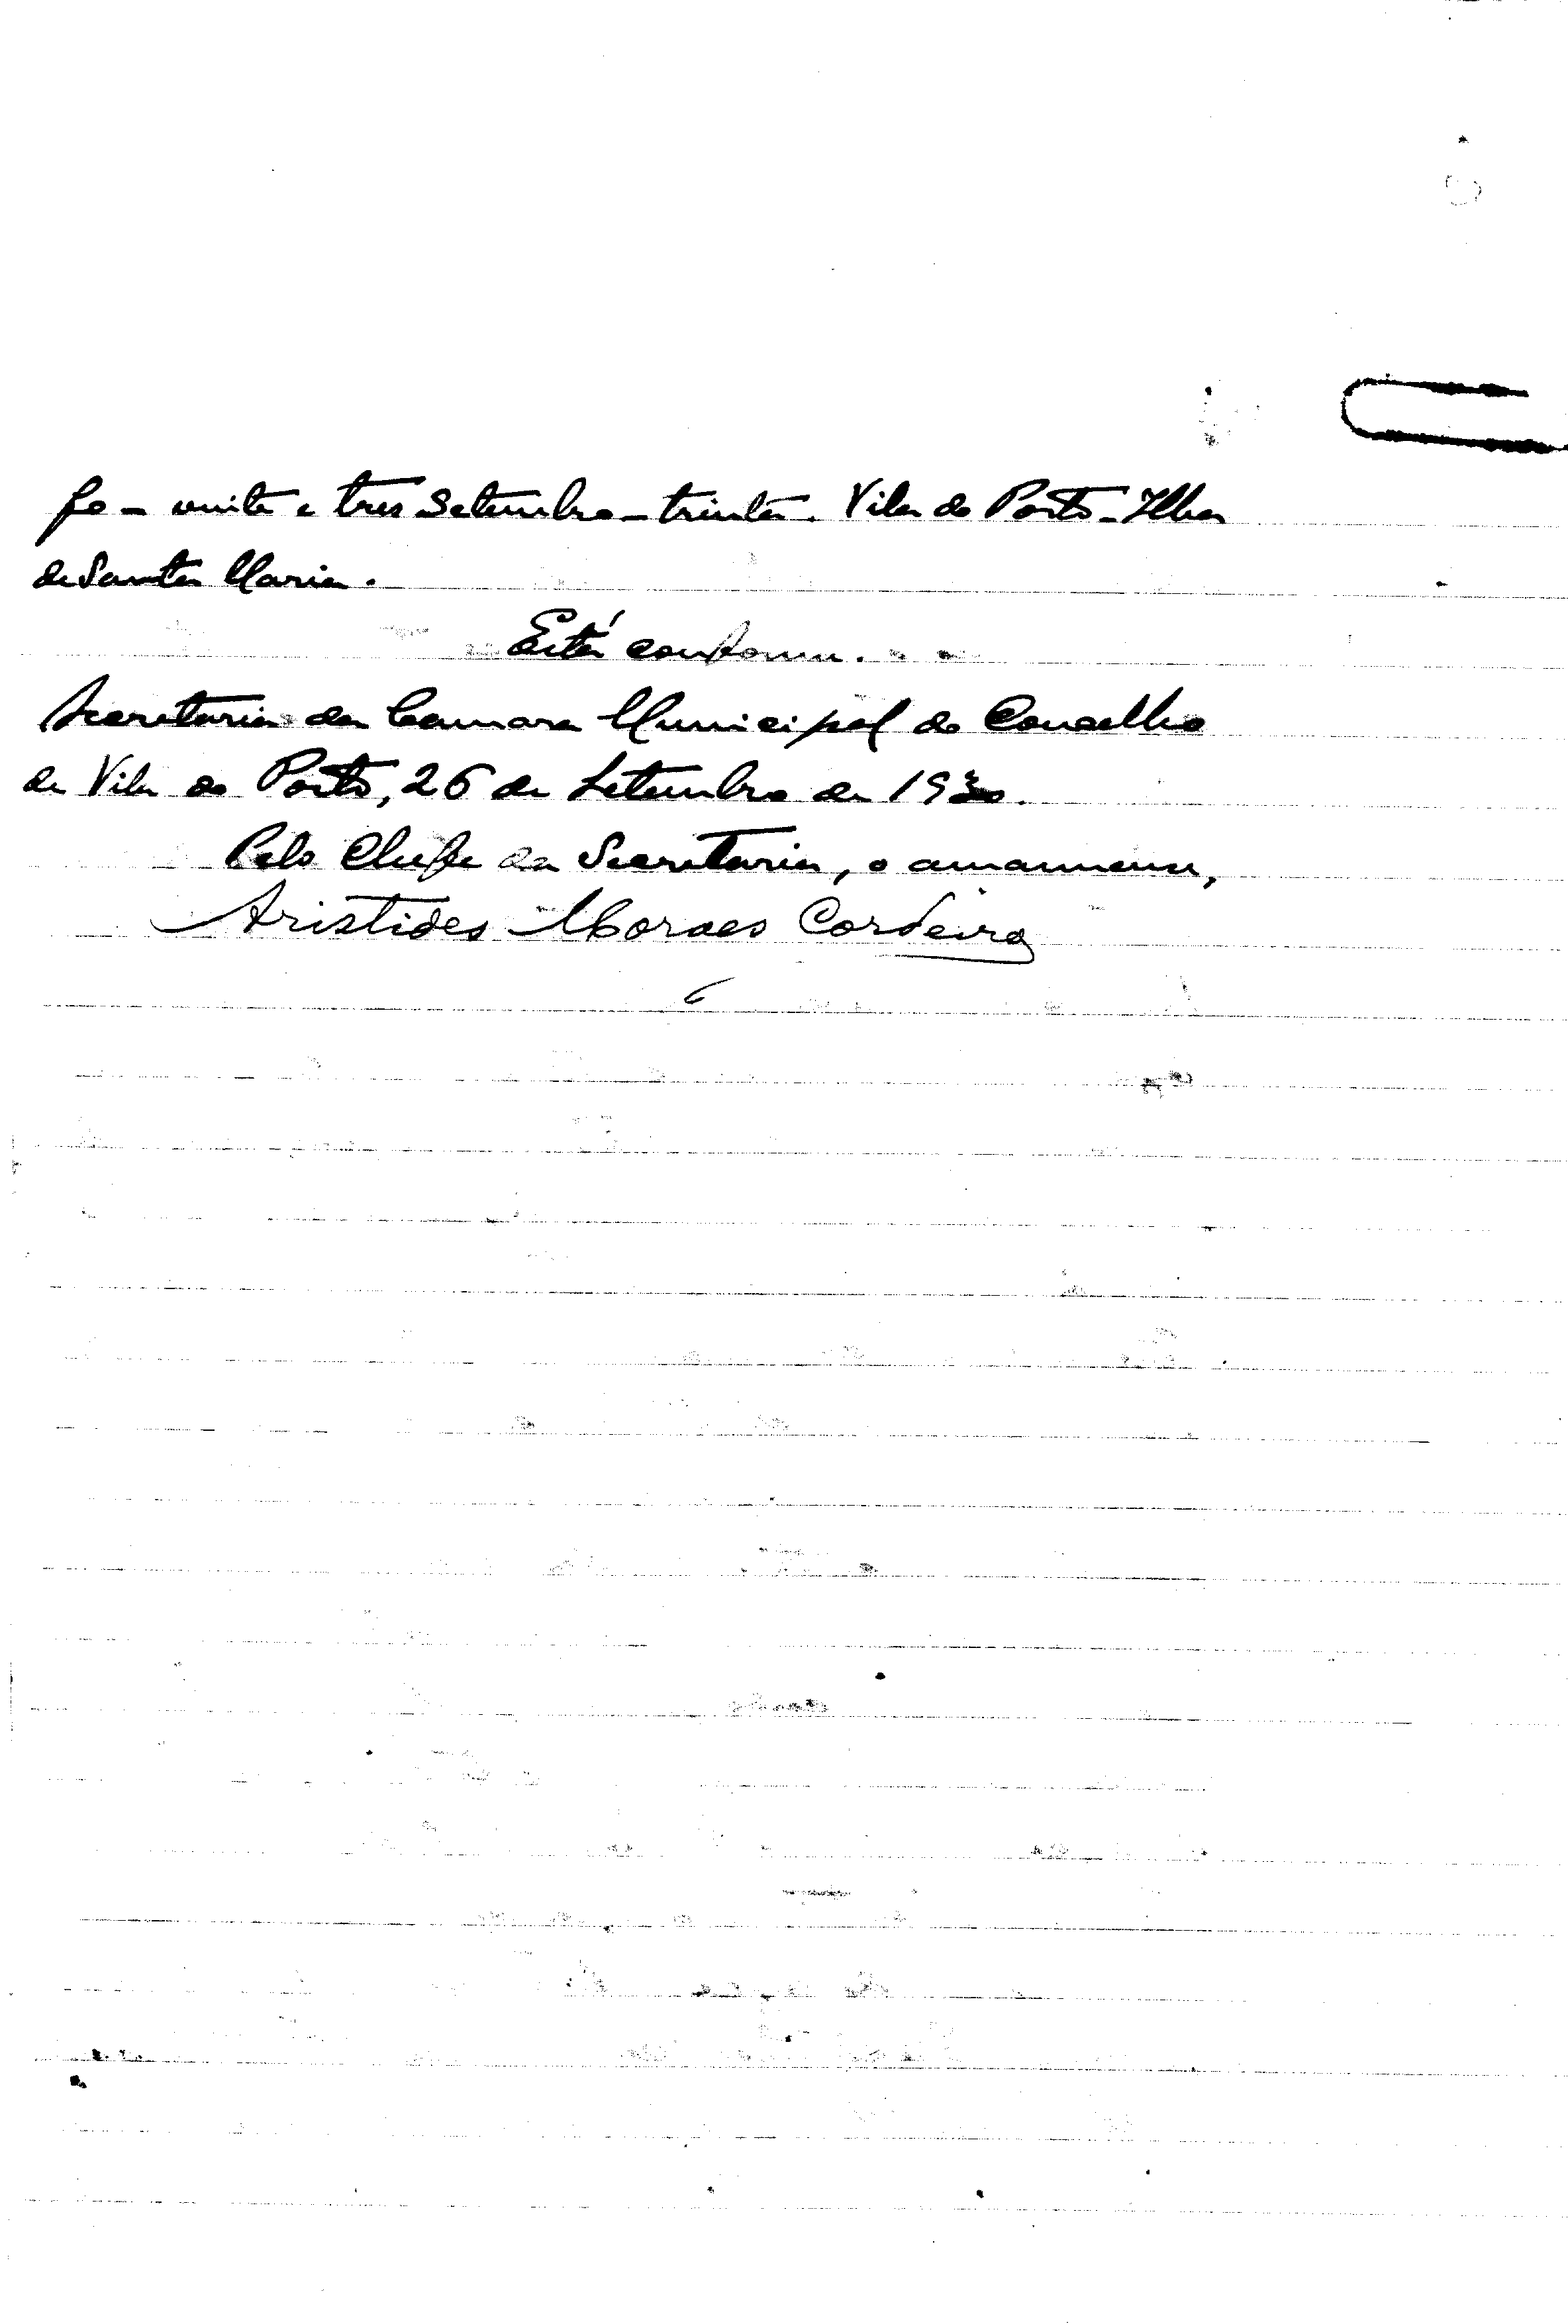 fo - vinte e tres Setembro - trinta. Vila do Porto - Ilha
de Santa Maria.
Está conforme.
Secretaria da Camara Municipal do Concelho
de Vila do Porto, 26 de Setembro de 1930.
Pelo Chefe da Secretaria, o amanuense,
Aristides Moraes Cordeiro